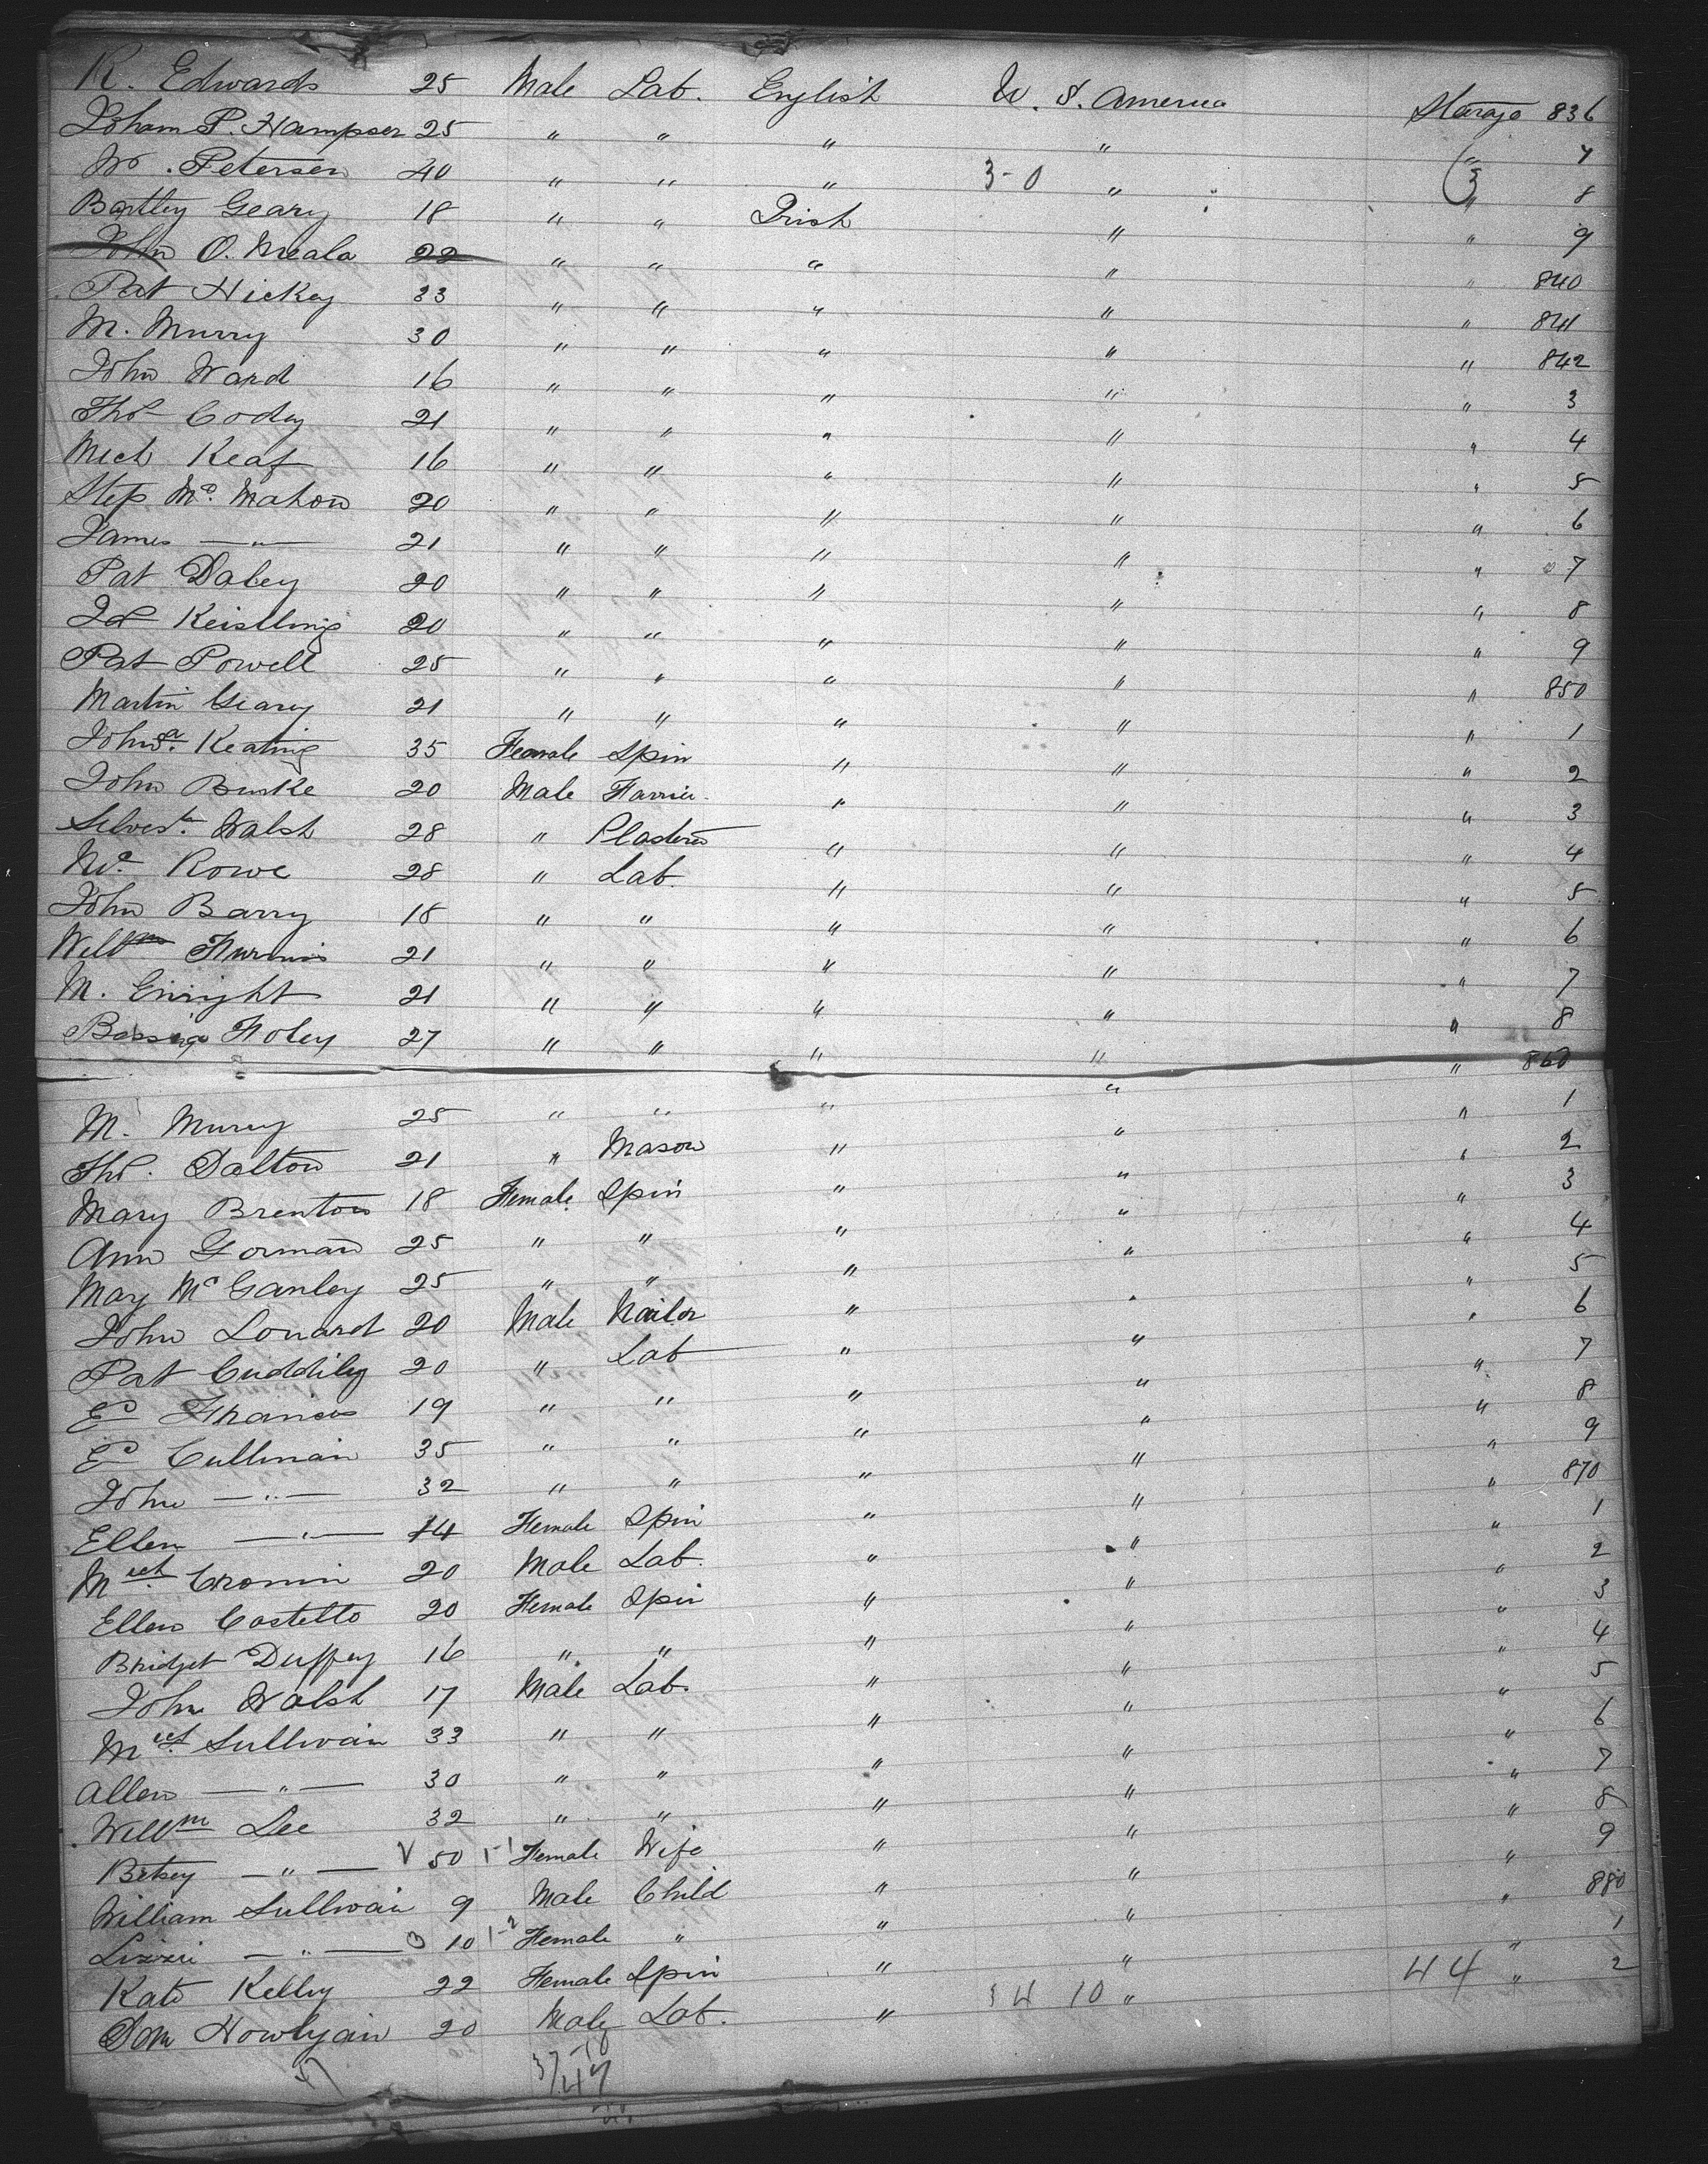 R. Edwards 25 Male Lab. English U. S. America Starage 836
Joham P. Hampser 25 " " " " " 7
W. Petersen 40 " " " 3-0 " 3 " 8
Bartley Geary 18 " " Irish " " 9
John O. Meala 22 " " " " " 840
Pat Hickey 33 " " " " " 841
M. Murry 30 " " " " " 842
John Ward 16 " " " " " 3
Thos Codey 21 " " " " " 4
Mich Keaf 16 " " " " " 5
Step Mc. Mahon 20 " " " " " 6
James —"— 21 " " " " " 7
Pat Daley 20 " " " " " 8
Jas Keistling 20 " " " " " 9
Pat Powell 25 " " " " " 850
Martin Geary 21 " " " " " 1
Johna. Keating 35 Female Spin " " " 2
John Burke 20 Male Farrier " " " 3
Silvestr. Walsh 28 " Plasterer " " " 4
Wm. Rowe 28 " Lab. " " " 5
John Barry 18 " " " " " 6
Willm Furnis 21 " " " " " 7
M. Enright 21 " " " " " 8
Foley 27 " " " " " 860
M. Murry 25 " " " " " 1
Thos. Dalton 21 " Mason " " " 2
Mary Brenton 18 Female Spin " " " 3
Ann Gorman 25 " " " " " 4
May Mc Ganley 25 " " " " " 5
John Lonard 20 Male Nailor " " " 6
Pat Cuddihy 20 " Lab " " " 7
Ed Francis 19 " " " " " 8
Ed Cullinain 35 " " " " " 9
John —"— 32 " " " " " 870
Ellen —"— 14 Female Spin " " " 1
Mich. Cronin 20 Male Lab. " " " 2
Ellen Costello 20 Female Spin " " " 3
Bridget Duffey 16 " " " " " 4
John Walsh 17 Male Lab. " " " 5
Mich. Sullivain 33 " " " " " 6
Allen —"— 30 " " " " " 7
Willm Lee 32 " " " " " 8
Betsey —"— V 50 1-1 Female Wife " " " 9
William Sullivain 9 Male Child " " " 880
Lizzie —"— 10 1-2 Female " " " " 1
Kate Kelley 22 Female Spin " " 44 " 2
Howlyain 20 Male Lab. " 34 10 "
47 37-10
47